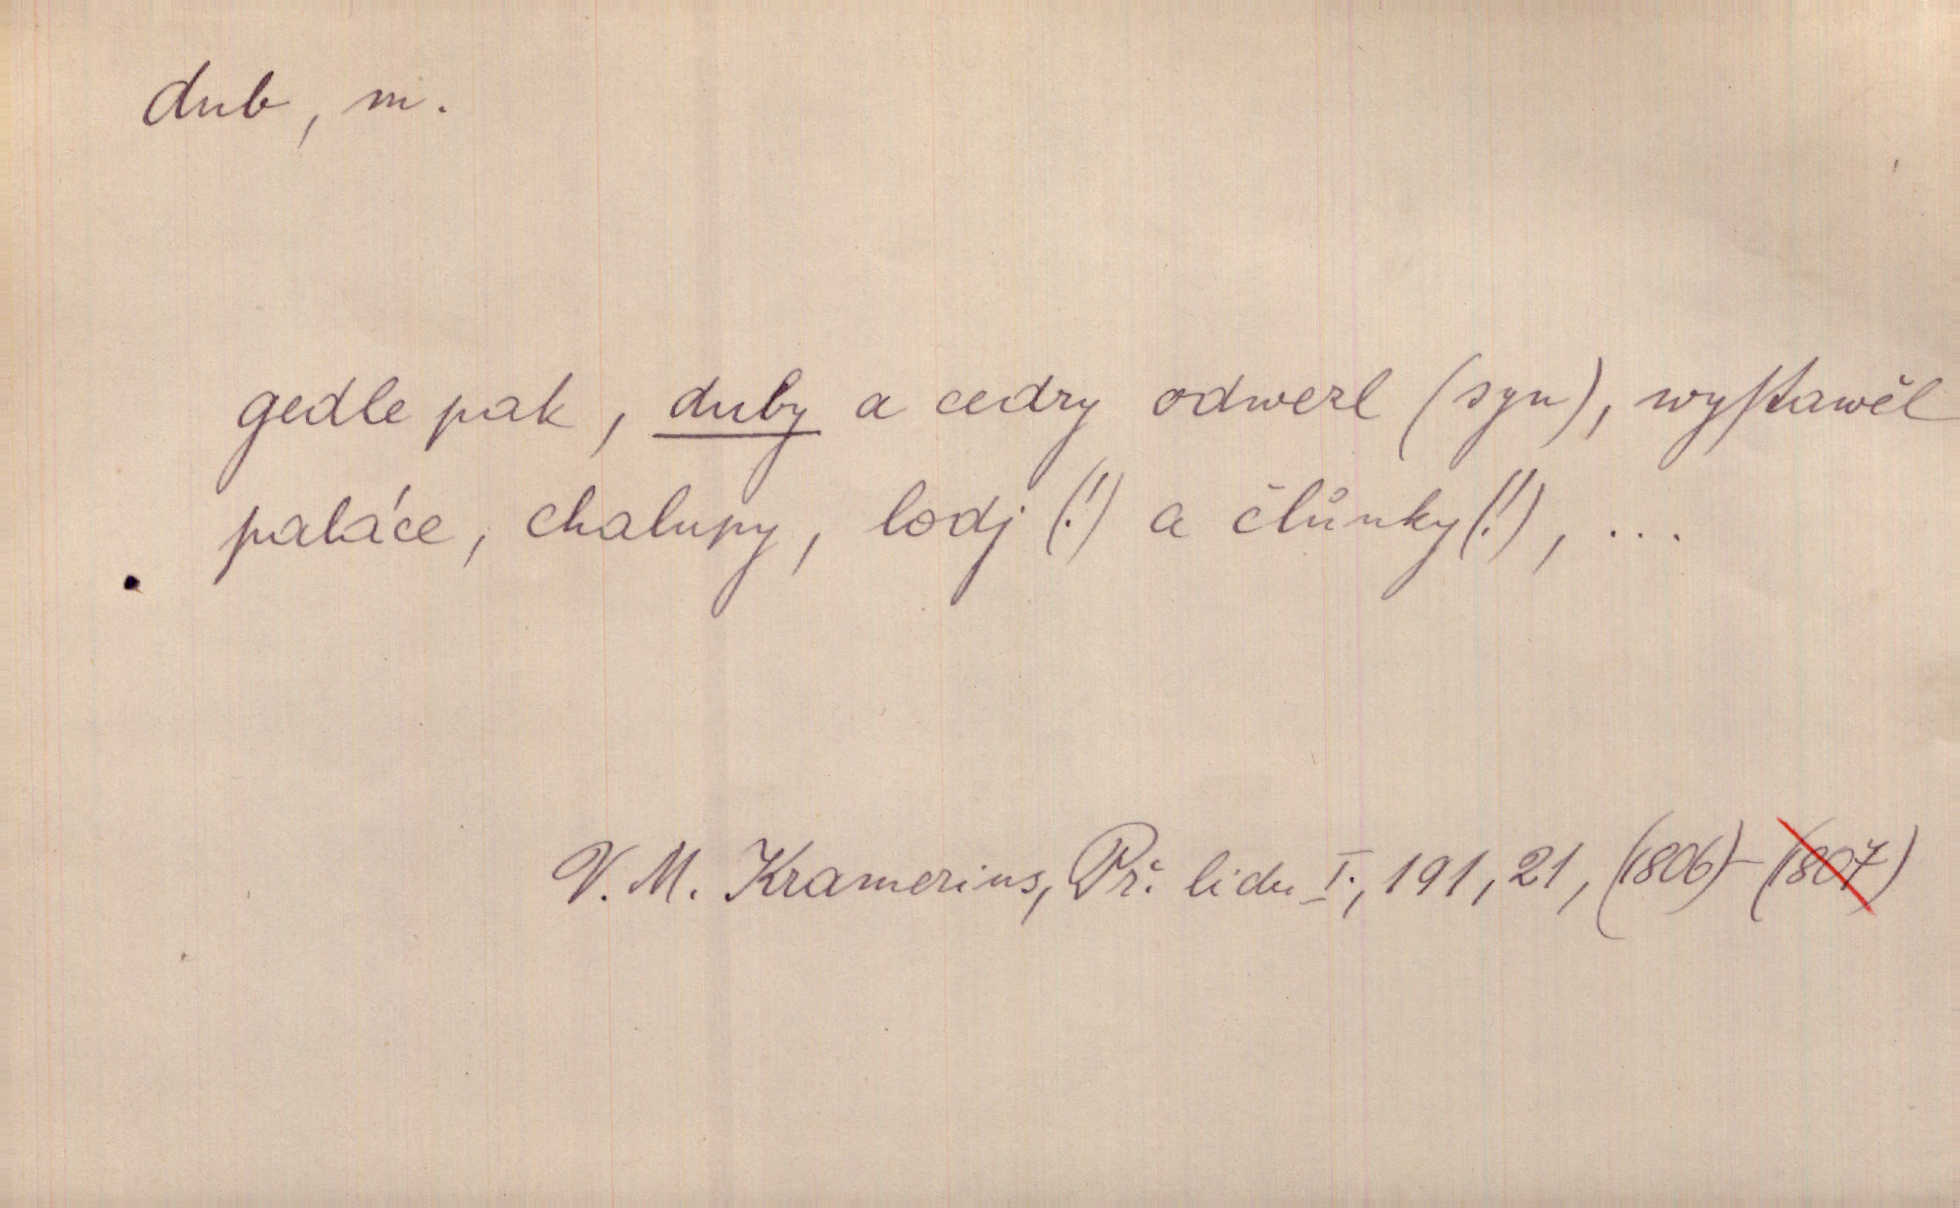 dub, m.
gedle pak, duby a cedry odwezl (syn), wystawěl
paláce, chalupy, lodj (!) a člůnky (!), ...
V. M. Kramerius, Př. lidu I., 191, 21, (1806)-(1807)